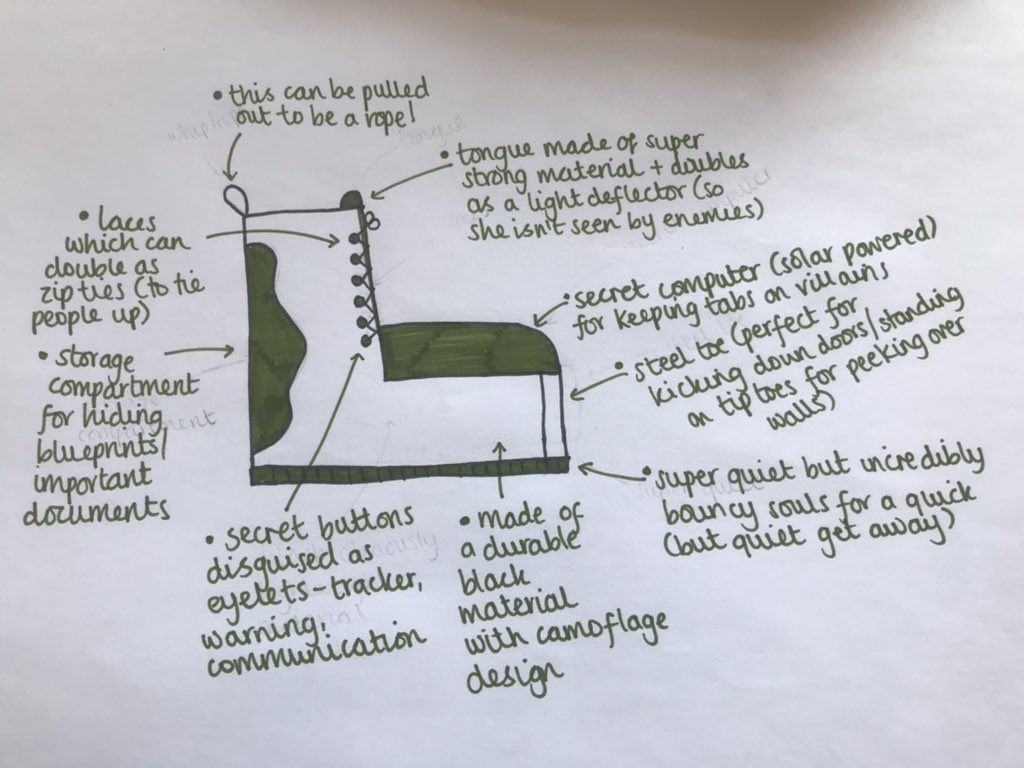 • this can be pulled
out to be a rope!
• tongue made of super
strong material + doubles
as a light deflector (so
she isn't seen by enemies)
• laces
which can
double as
zip ties (to tie
people up)
• secret computer (solar powered)
for keeping tabs on villains
• steel toe (perfect for
kicking down doors/standing
on tip toes for peeking over
walls)
• storage
compartment
for hiding
blueprints/
important
documents
• super quiet but incredibly
bouncy souls for a quick
(but quiet get away)
• secret buttons
disguised as
eyelets-tracker,
warning,
communication
• made of
a durable
black
material
with camoflage
design
tongue